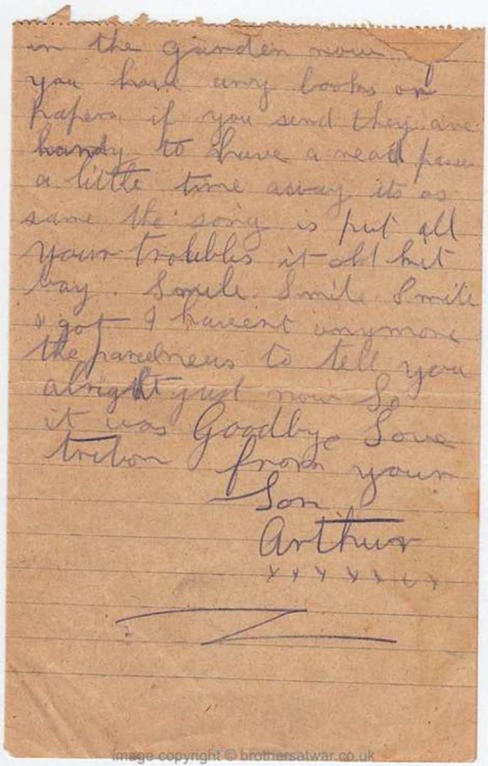 in the garden now if
you have any books or
papers if you send they are
handy to have a read passes
a little time away its as
same the song is put all
your troubles it old kit
bag. Smile. Smile. Smile
I got I havent anymore
the parcel news to tell you
alright just now So
it was Goodbye Love
from your
Son
Arthur
x x x x x x x
image copyright © brothersatwar.co.uk